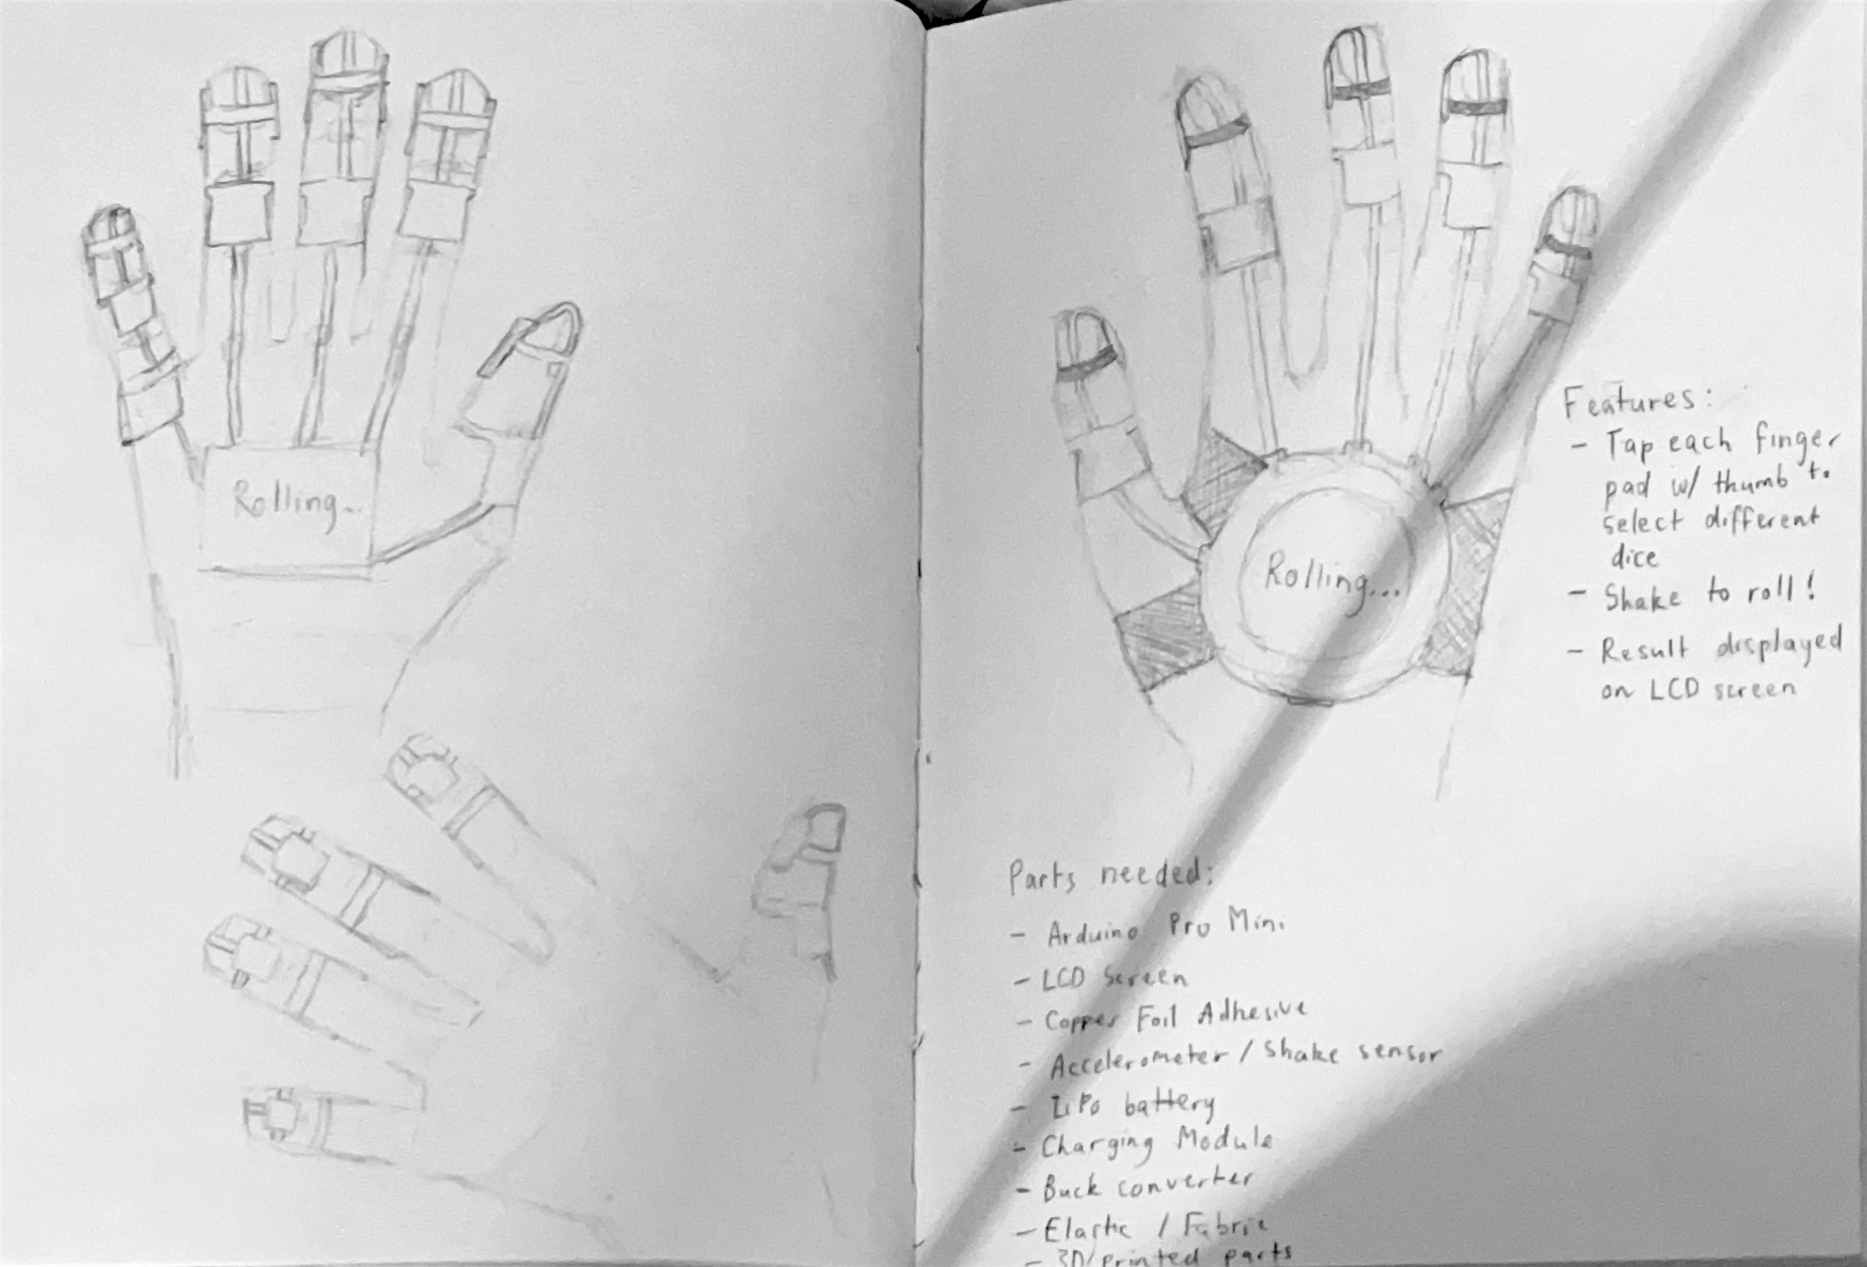 Rolling...
Rolling...
Features:
- Tap each finger
pad w/ thumb to
select different
dice
- Shake to roll!
- Result displayed
on LCD screen
Parts needed:
- Arduino Pro Mini
- LCD Screen
- Copper Foil Adhesive
- Accelerometer / Shake sensor
- LiPo battery
- Charging Module
- Buck converter
- Elastic / Fabric
- 3D printed parts